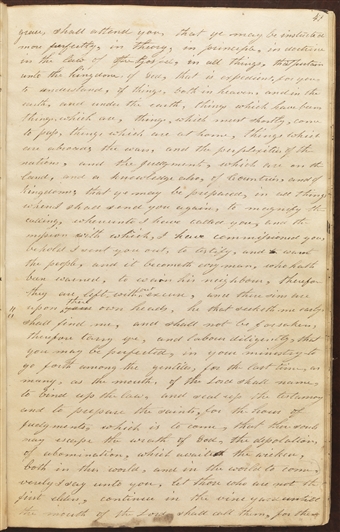 grace shall attend you, that ye may be instructed
more perfectly, in theory, in principle, in doctrine
in the law of the gospel, in all things, that pertain
unto the kingdom of God, that is expedient, for you
to understand, of things, both in heaven, and in the
earth, and under the earth, things which have been
things which are, things, which must shortly, come
to pass, things which are at home, things which
are abroad the wars, and the perplexities of the
nations, and the judgments, which are on the
land, and a knowledge also, of countries, and of
kingdoms, that ye may be prepared, in all things
when I shall send you again, to magnify the
calling, whereunto I have called you, and the
mission with which, I have commissioned you,
behold I sent you out, to testify, and warn
the people, and it becometh every man, who hath
been warned, to warn his neighbour, therefore
they are left, without excuse, and their sins are
upon their own heads, he that seeketh me early
shall find me, and shall not be forsaken,
therefore tarry ye, and labour diligently, that
you may be perfected, in your ministry to
go forth among the gentiles, for the last time, as
many, as the mouth, of the Lord shall name,
to bind up the law, and seal up, the testimony
and to prepare the saints, for the hour of
judgments, which is to come, that their souls
may escape the wrath of God, the desolation,
of abomination, which awaits the wicked,
both in this world, and in the world to come,
verily I say unto you, let those who are not the
first elders, continue in the vineyard until
the mouth of the Lord shall call them, for their